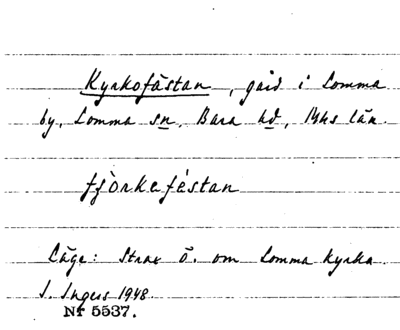 Kyrkofästan, gård i Lomma
by, Lomma sn, Bara hd, Mhs län.
fjòrkeféstan
Läge: Strax Ö. om Lomma kyrka.
J. Ingers 1948.
Nr 5537.